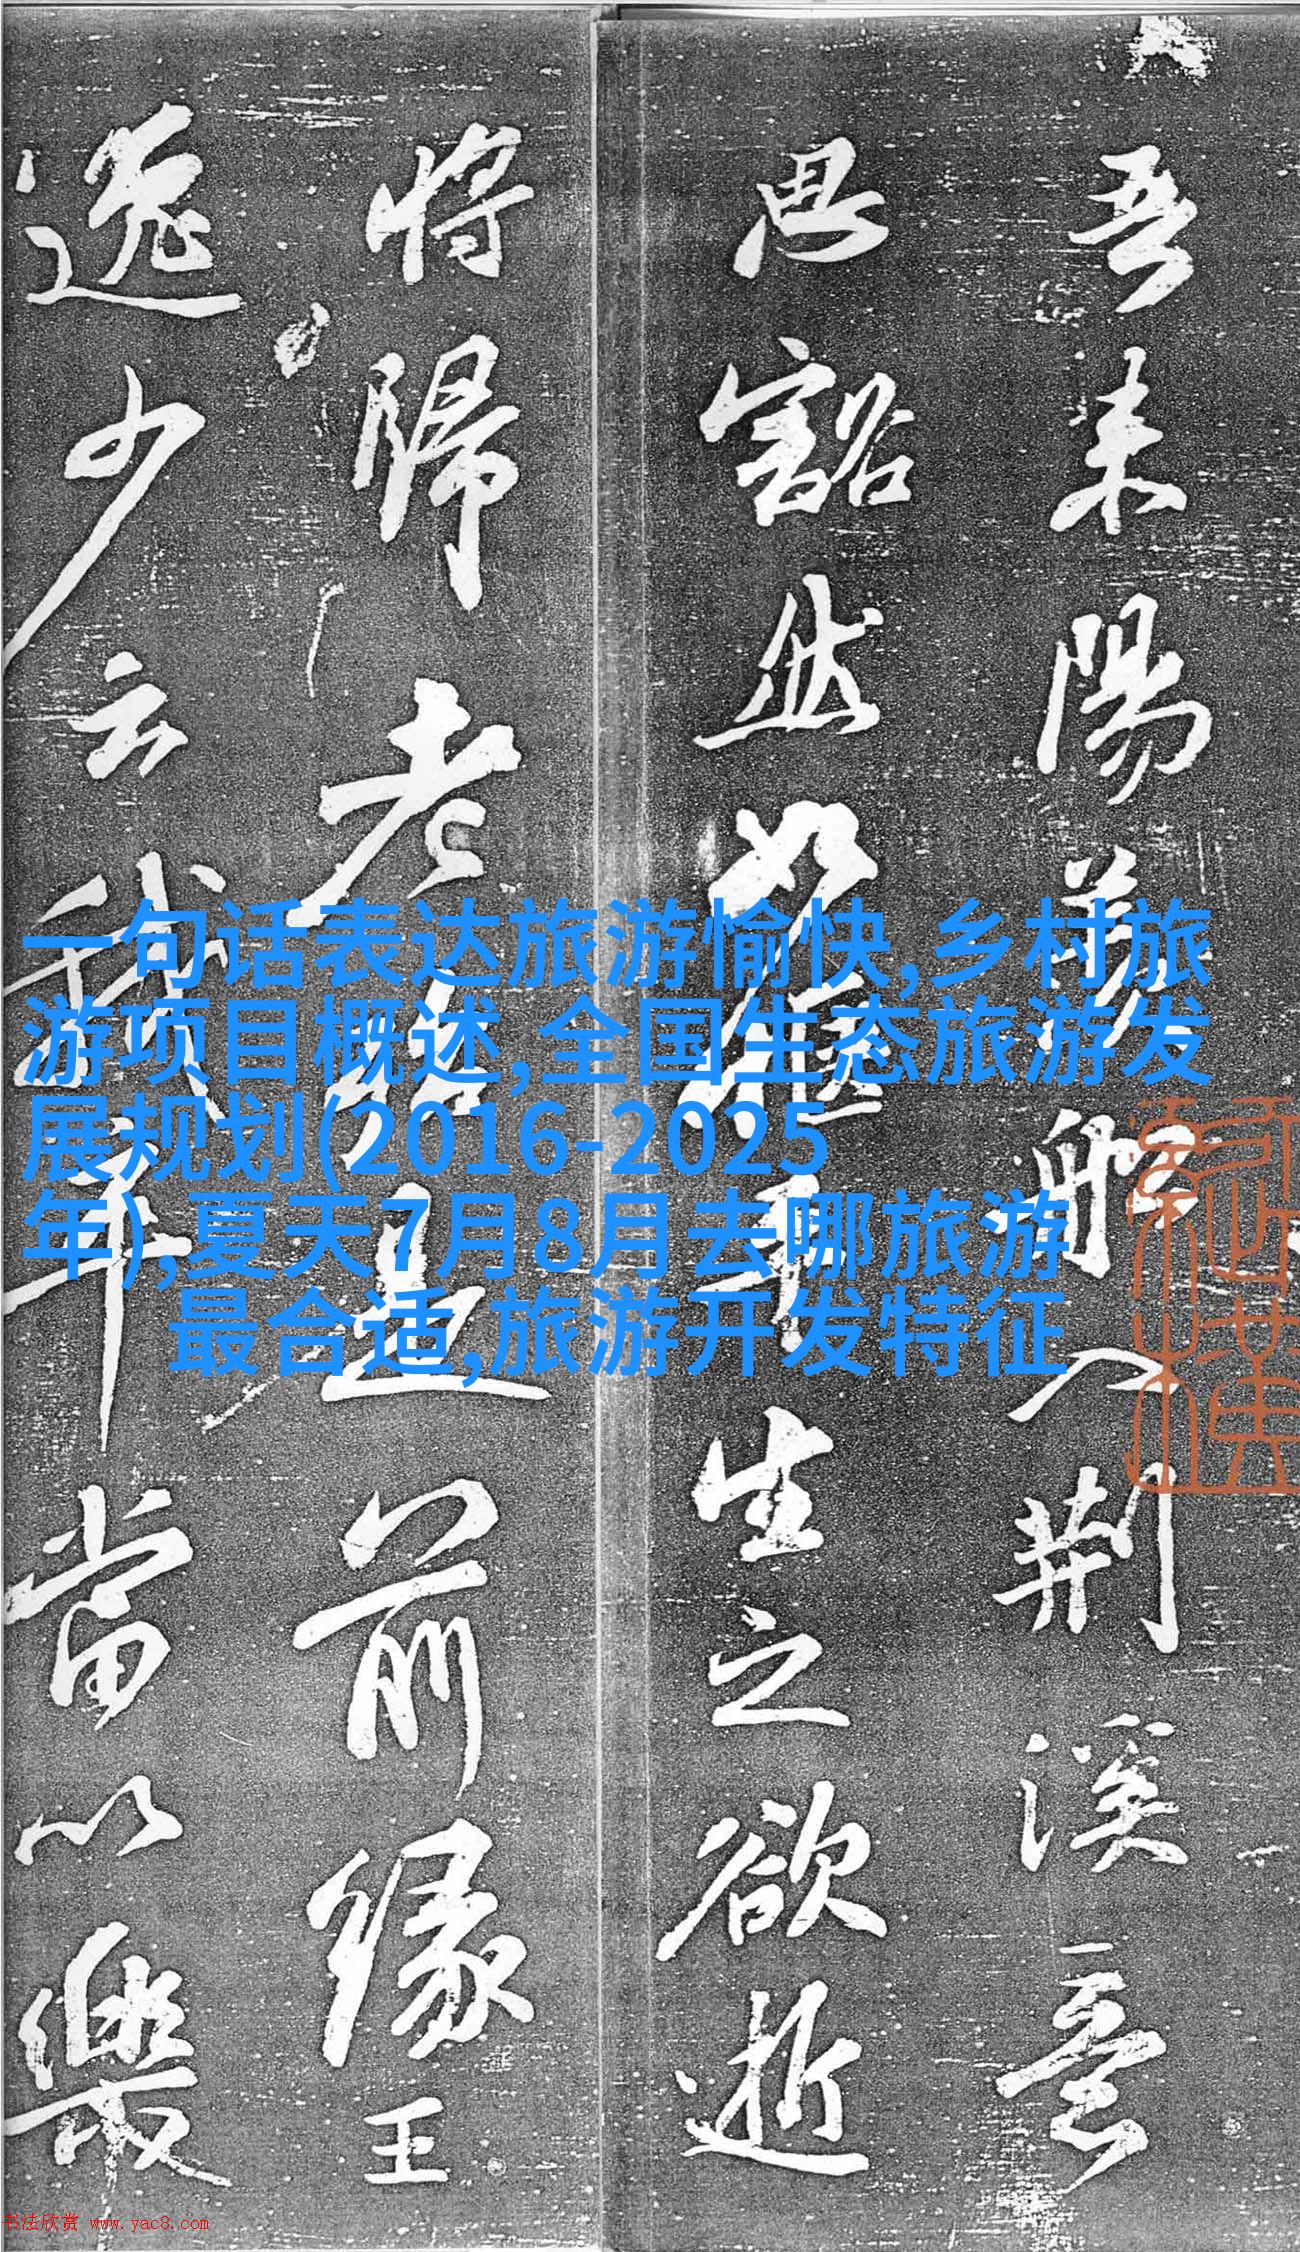 吾来陽羡船入荆溪意
思豁然如惬平生之欲逝
将歸老殆是前緣王
逸少云我卒當以樂
一句话表达旅游愉快,乡村旅
游项目概述,全国生态旅游发
展规划(2016-2025
年),夏天7月8月去哪旅游
最合适,旅游开发特征
书法欣赏 www.yac8.com